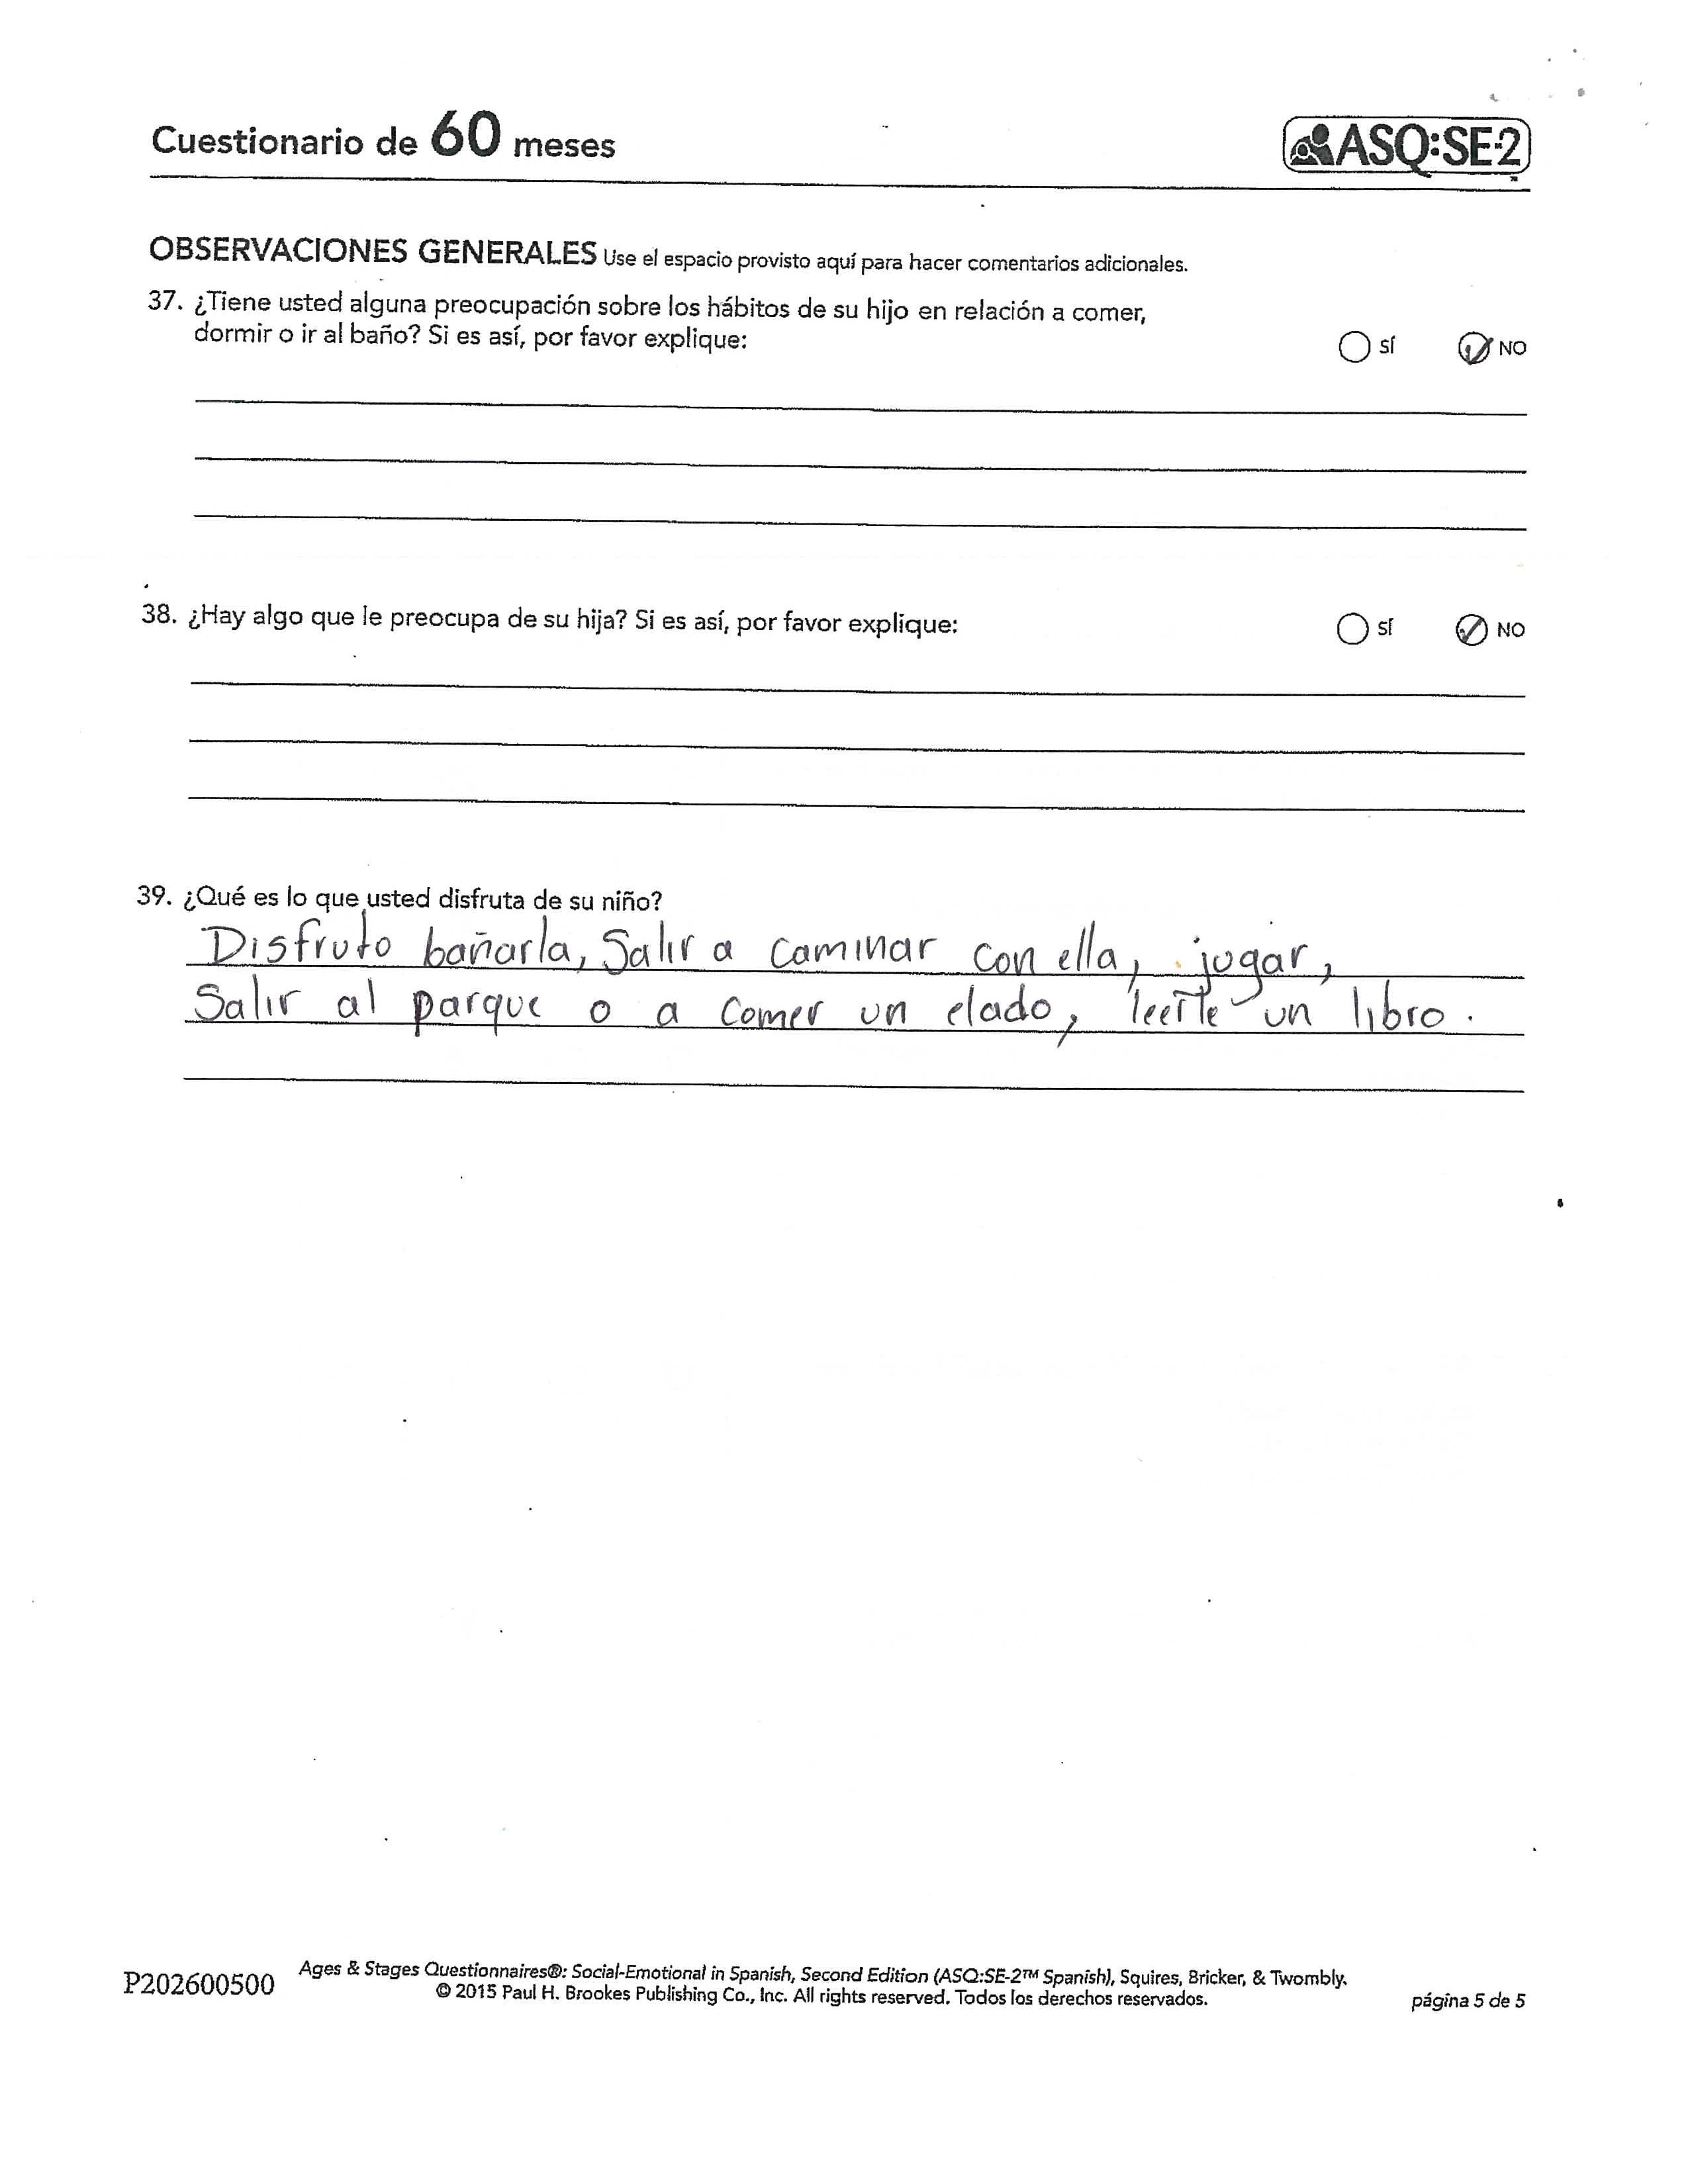 Cuestionario de 60 meses
ASQ:SE-2
OBSERVACIONES GENERALES Use el espacio provisto aquí para hacer comentarios adicionales.
37. ¿Tiene usted alguna preocupación sobre los hábitos de su hijo en relación a comer,
dormir o ir al baño? Si es así, por favor explique:
SÍ NO
38. ¿Hay algo que le preocupa de su hija? Si es así, por favor explique:
SÍ NO
39. ¿Qué es lo que usted disfruta de su niño?
Disfruto bañarla, Salir a caminar con ella, jugar,
Salir al parque o a comer un elado, leerle un libro.
P202600500
Ages & Stages Questionnaires®: Social-Emotional in Spanish, Second Edition (ASQ:SE-2™ Spanish), Squires, Bricker, & Twombly.
© 2015 Paul H. Brookes Publishing Co., Inc. All rights reserved. Todos los derechos reservados.
página 5 de 5